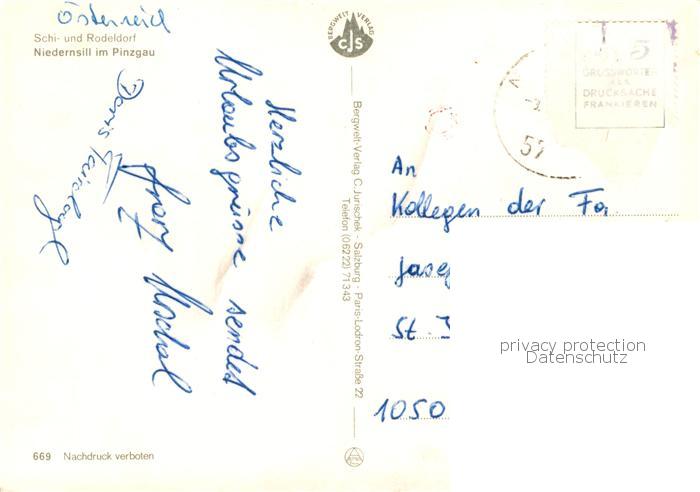 Österreich
Schi- und Rodeldorf
Niedernsill im Pinzgau
Herzliche
Urlaubsgrüsse sendet
Franz
Doris
BERGWELT VERLAG
CJS
Bergwelt-Verlag C. Jurischek - Salzburg - Paris-Lodron-Straße 22
Telefon (06222) 71343
5
GRUSSWORTE
ALS
DRUCKSACHE
FRANKIEREN
57
An
Kollegen der Fa.
Josef
St.
1050
privacy protection
Datenschutz
669 Nachdruck verboten